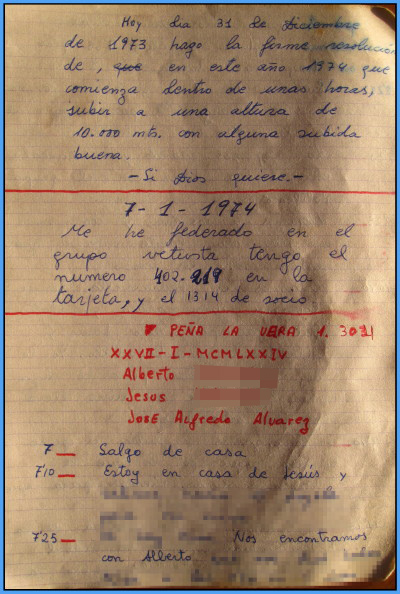 Hoy día 31 de Diciembre
de 1973 hago la firme resolución
de, que en este año 1974 que
comienza dentro de unas horas,
subir a una altura de
10.000 mts. con alguna subida
buena.
- Si Dios quiere.-
7-1-1974
Me he federado en el
grupo vetusta tengo el
numero 402-219 en la
tarjeta, y el 1314 de socio
PEÑA LA VERA 1.
XXVII-I-MCMLXXIV
Alberto
Jesus
JOSE Alfredo Alvarez
7 — Salgo de casa
710 — Estoy en casa de Jesús y
725 — Nos encontramos
con Alberto